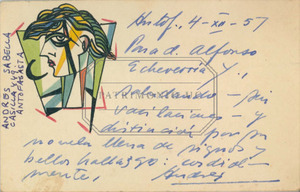 ANDRÉS SABELLA
CASILLA 491
ANTOFAGASTA
Antof. 4-XII-57
Para d. Alfonso
Echeverría Y.,
saludando - sin
vacilaciones - y
distinción por su
novela llena de signos y
bellos hallazgos: cordial-
mente,
Andrés